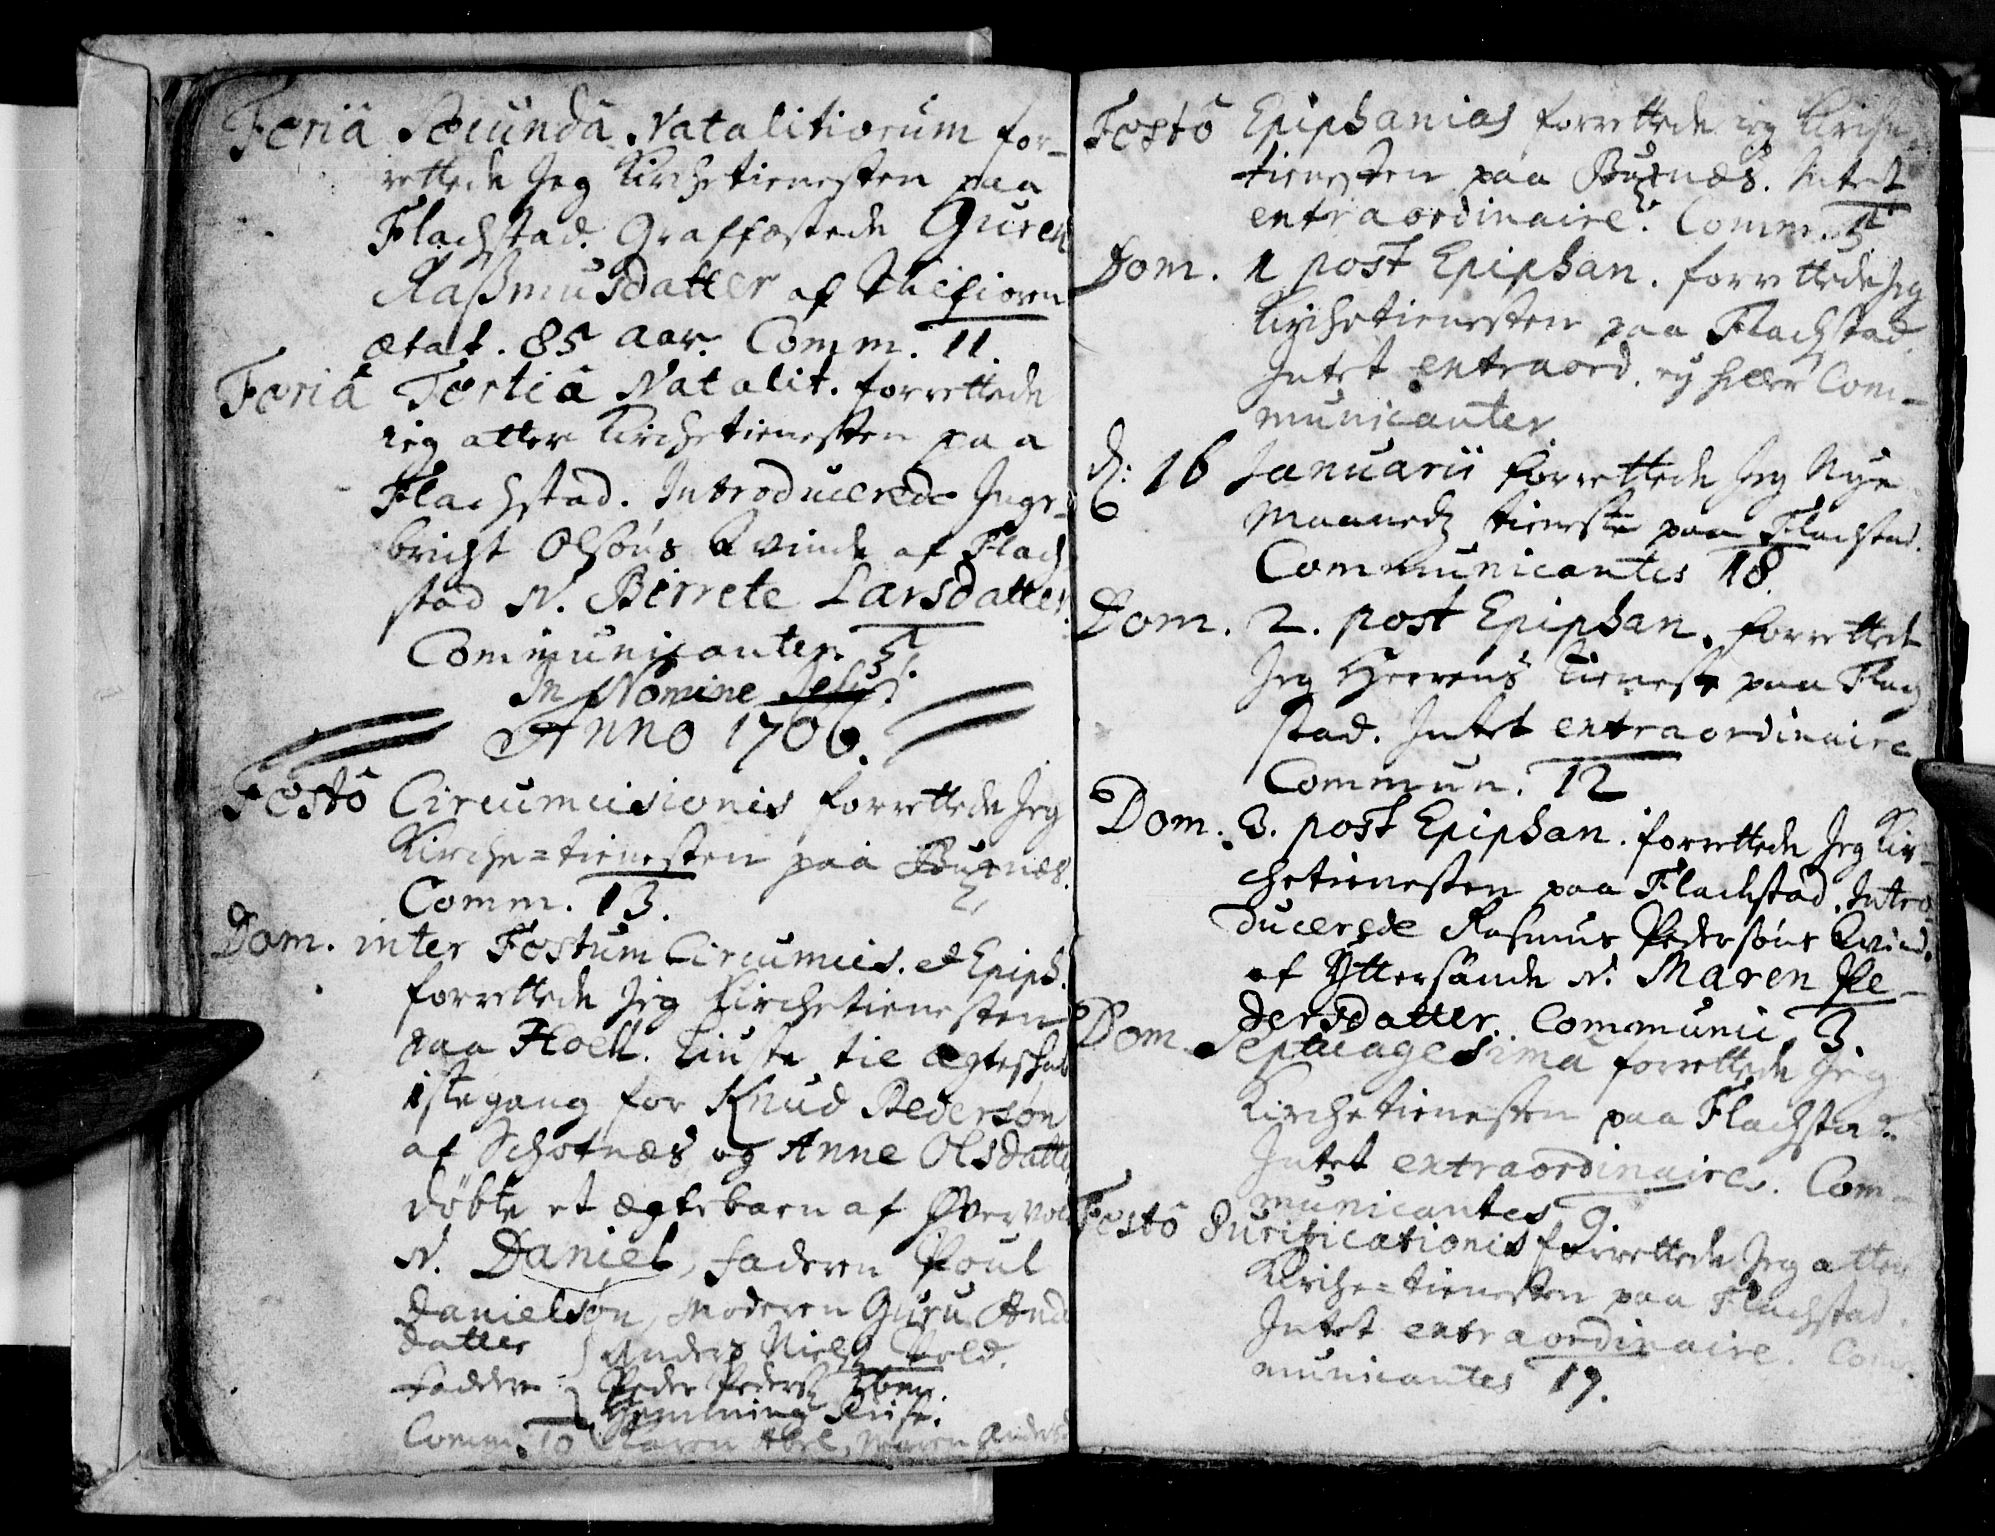 Feriâ Secundâ Natalitiorum for-
rettede Jeg Kirchetienesten paa
Flachstad. Graffæstede Guren
Raßmusdatter af
ætat. 85 aar. Comm. 11.
Feriâ Tertiâ Natalit. forrettede
ieg atter Kirchetienesten paa
Flachstad. Introducerede Inge-
bricht Olsöns Kvinde af Flach
stad N. Birrete Larsdatter.
Communicanter 5.
In Nomine Jesu!
Anno 1706.
Festô Circumcisionis forrettede Jeg
Kirche=tienesten paa Buxnæs.
Comm. 13.
Dom. inter Festum Circumcis. et Epiph.
forrettede Jeg Kirchetienesten
paa Hoell. Liuste til ægteschab
1ste gang for Knud Pedersøn
af Schotnæs og Anne Olsdatter
döbte et ægte barn af
N. Daniel, faderen Poul
Danielsøn, Moderen Guru And
datter { Anders Niels Vold.
Faddere { Peder Peders
Hemming
Comm. 10 Karen Abel, Maren Anders
Festô Epiphanias forrettede ieg Kirche
tienesten paa Buxnæs. Intet
extraordinaire. Comm. 5
Dom. 1 post Epiphan. forrettede Jeg
Kirchetienesten paa Flachstad
Intet extraord. ey heller Com-
municanter
d: 16 Januarii forrettede Jeg Nye
Maanedz tieneste paa Flachstad.
Communicantes 18.
Dom. 2. post Epiphan. forrettede
Jeg Herrens tieneste paa Flag
stad. Intet extraordinaire
Commun. 12
Dom. 3. post Epiphan. forrettede Jeg Kir-
chetienesten paa Flachstad. Intro
ducerede Rasmus Pedersöns Kvinde
af Yttersande N. Maren Pe-
dersdatter. Communic. 3.
Dom. Septuagesima forrettede Jeg
Kirchetienesten paa Flachstad.
Intet extraordinaires. Com-
municantes 9.
Festô Purificationis forrettede Jeg atter
Kirche=tienesten paa Flachstad.
Intet extraordinaire. Com
municantes 19.